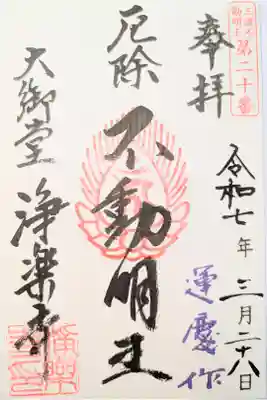 三浦不
動明王
第二十番
奉拝
令和七年 三月二十八日
運慶作
厄除
不動明王
大御堂
浄楽寺